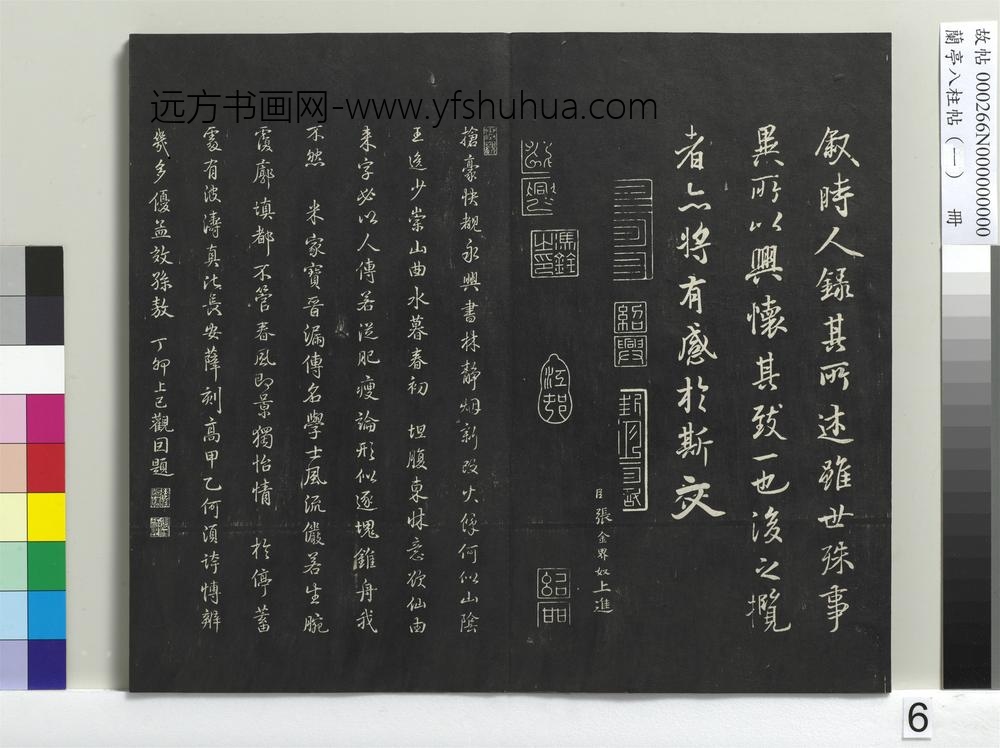 故帖 000266N000000000
蘭亭八柱帖（一） 冊
远方书画网-www.yfshuhua.com
敘時人錄其所述雖世殊事
異所以興懷其致一也後之攬
者亦將有感於斯文
紹興
馮銓之印
江邨
臣張金界奴上進
搶豪快覩永興書林靜烟新改火係何似山陰
王逸少崇山曲水暮春初 坦腹東牀意欲仙由
来字必以人傳若從肥瘦論形似逐塊錐舟我
不然 米家寶晉漏傳名學士風流儼若生腕
覆廓填都不管春風即景獨怡情 於停蓄
處有波濤真比長安薛刻高甲乙何須誇博辨
幾多優孟效孫敖 丁卯上巳觀因題
6